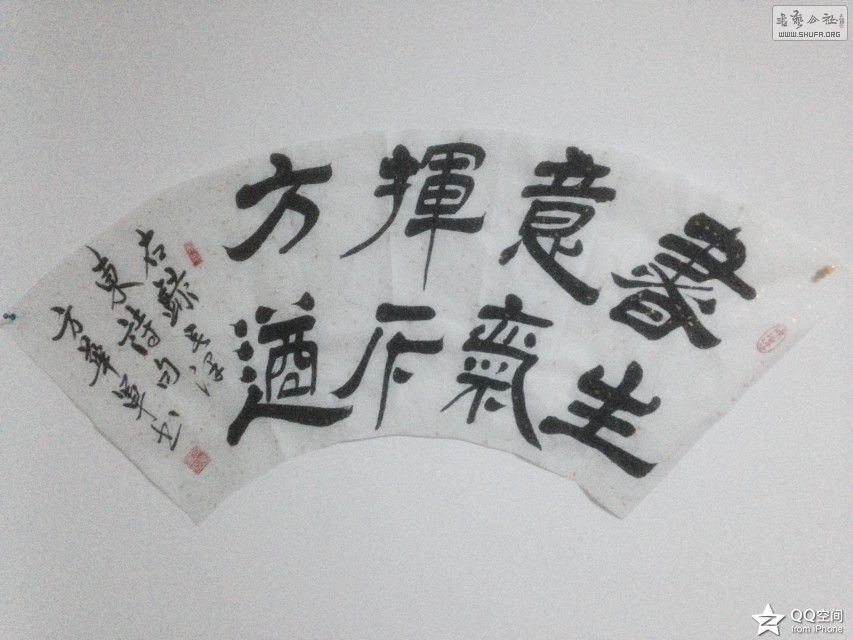 書生
意氣
揮斥
方遒
右錄毛澤
東詩句
方華軍书
書藝公社
WWW.SHUFA.ORG
QQ空间
from iPhone